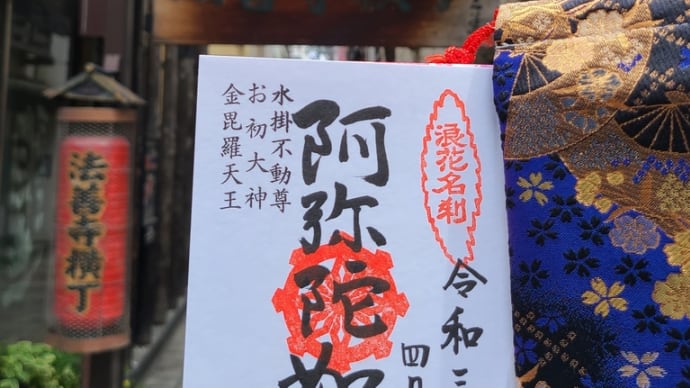 浪花名刹
令和三
四月
阿弥陀如
水掛不動尊
お初大神
金毘羅天王
法善寺横丁